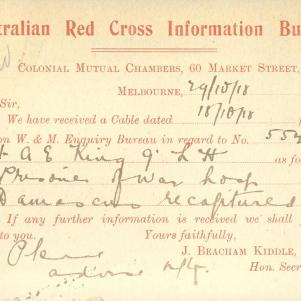 tralian Red Cross Information Bu
Colonial Mutual Chambers, 60 Market Street,
Melbourne, 29/10/18
Sir,
We have received a Cable dated 18/10/18
on W. & M. Enquiry Bureau in regard to No. 552
A E King 9' L H as fo
Prisoner of war hosp
Damascus recaptured
If any further information is received we shall
to you. Yours faithfully,
Please J. Beacham Kiddle,
advise Hon. Secr